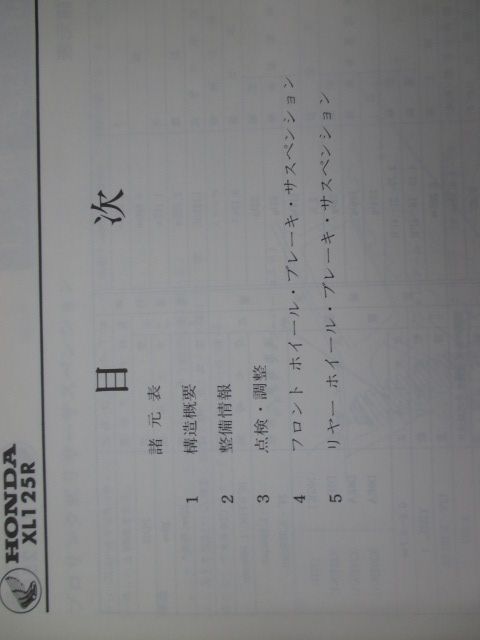 HONDA
XL125R
目次
諸元表
1 構造概要
2 整備情報
3 点検・調整
4 フロント ホイール・ブレーキ・サスペンション
5 リヤー ホイール・ブレーキ・サスペンション